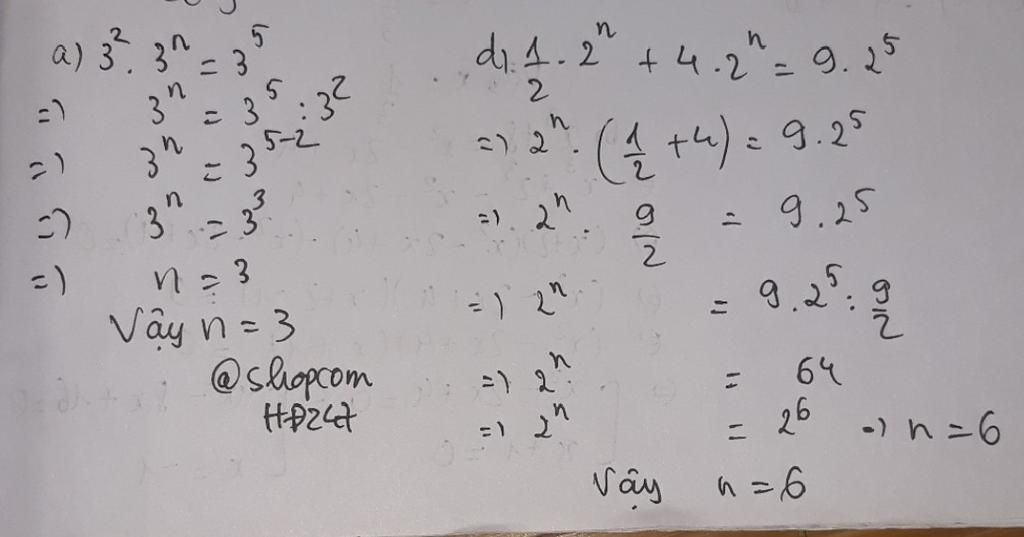 a) 3². 3ⁿ = 3⁵
=) 3ⁿ = 3⁵ : 3²
=) 3ⁿ = 3⁵⁻²
=) 3ⁿ = 3³
=) n = 3
Vậy n = 3
@shopcom
HĐ247
d) 1/2 . 2ⁿ + 4 . 2ⁿ = 9 . 2⁵
=) 2ⁿ . (1/2 + 4) = 9 . 2⁵
=) 2ⁿ . 9/2 = 9 . 2⁵
=) 2ⁿ = 9 . 2⁵ : 9/2
=) 2ⁿ = 64
=) 2ⁿ = 2⁶ =) n = 6
Vậy n = 6